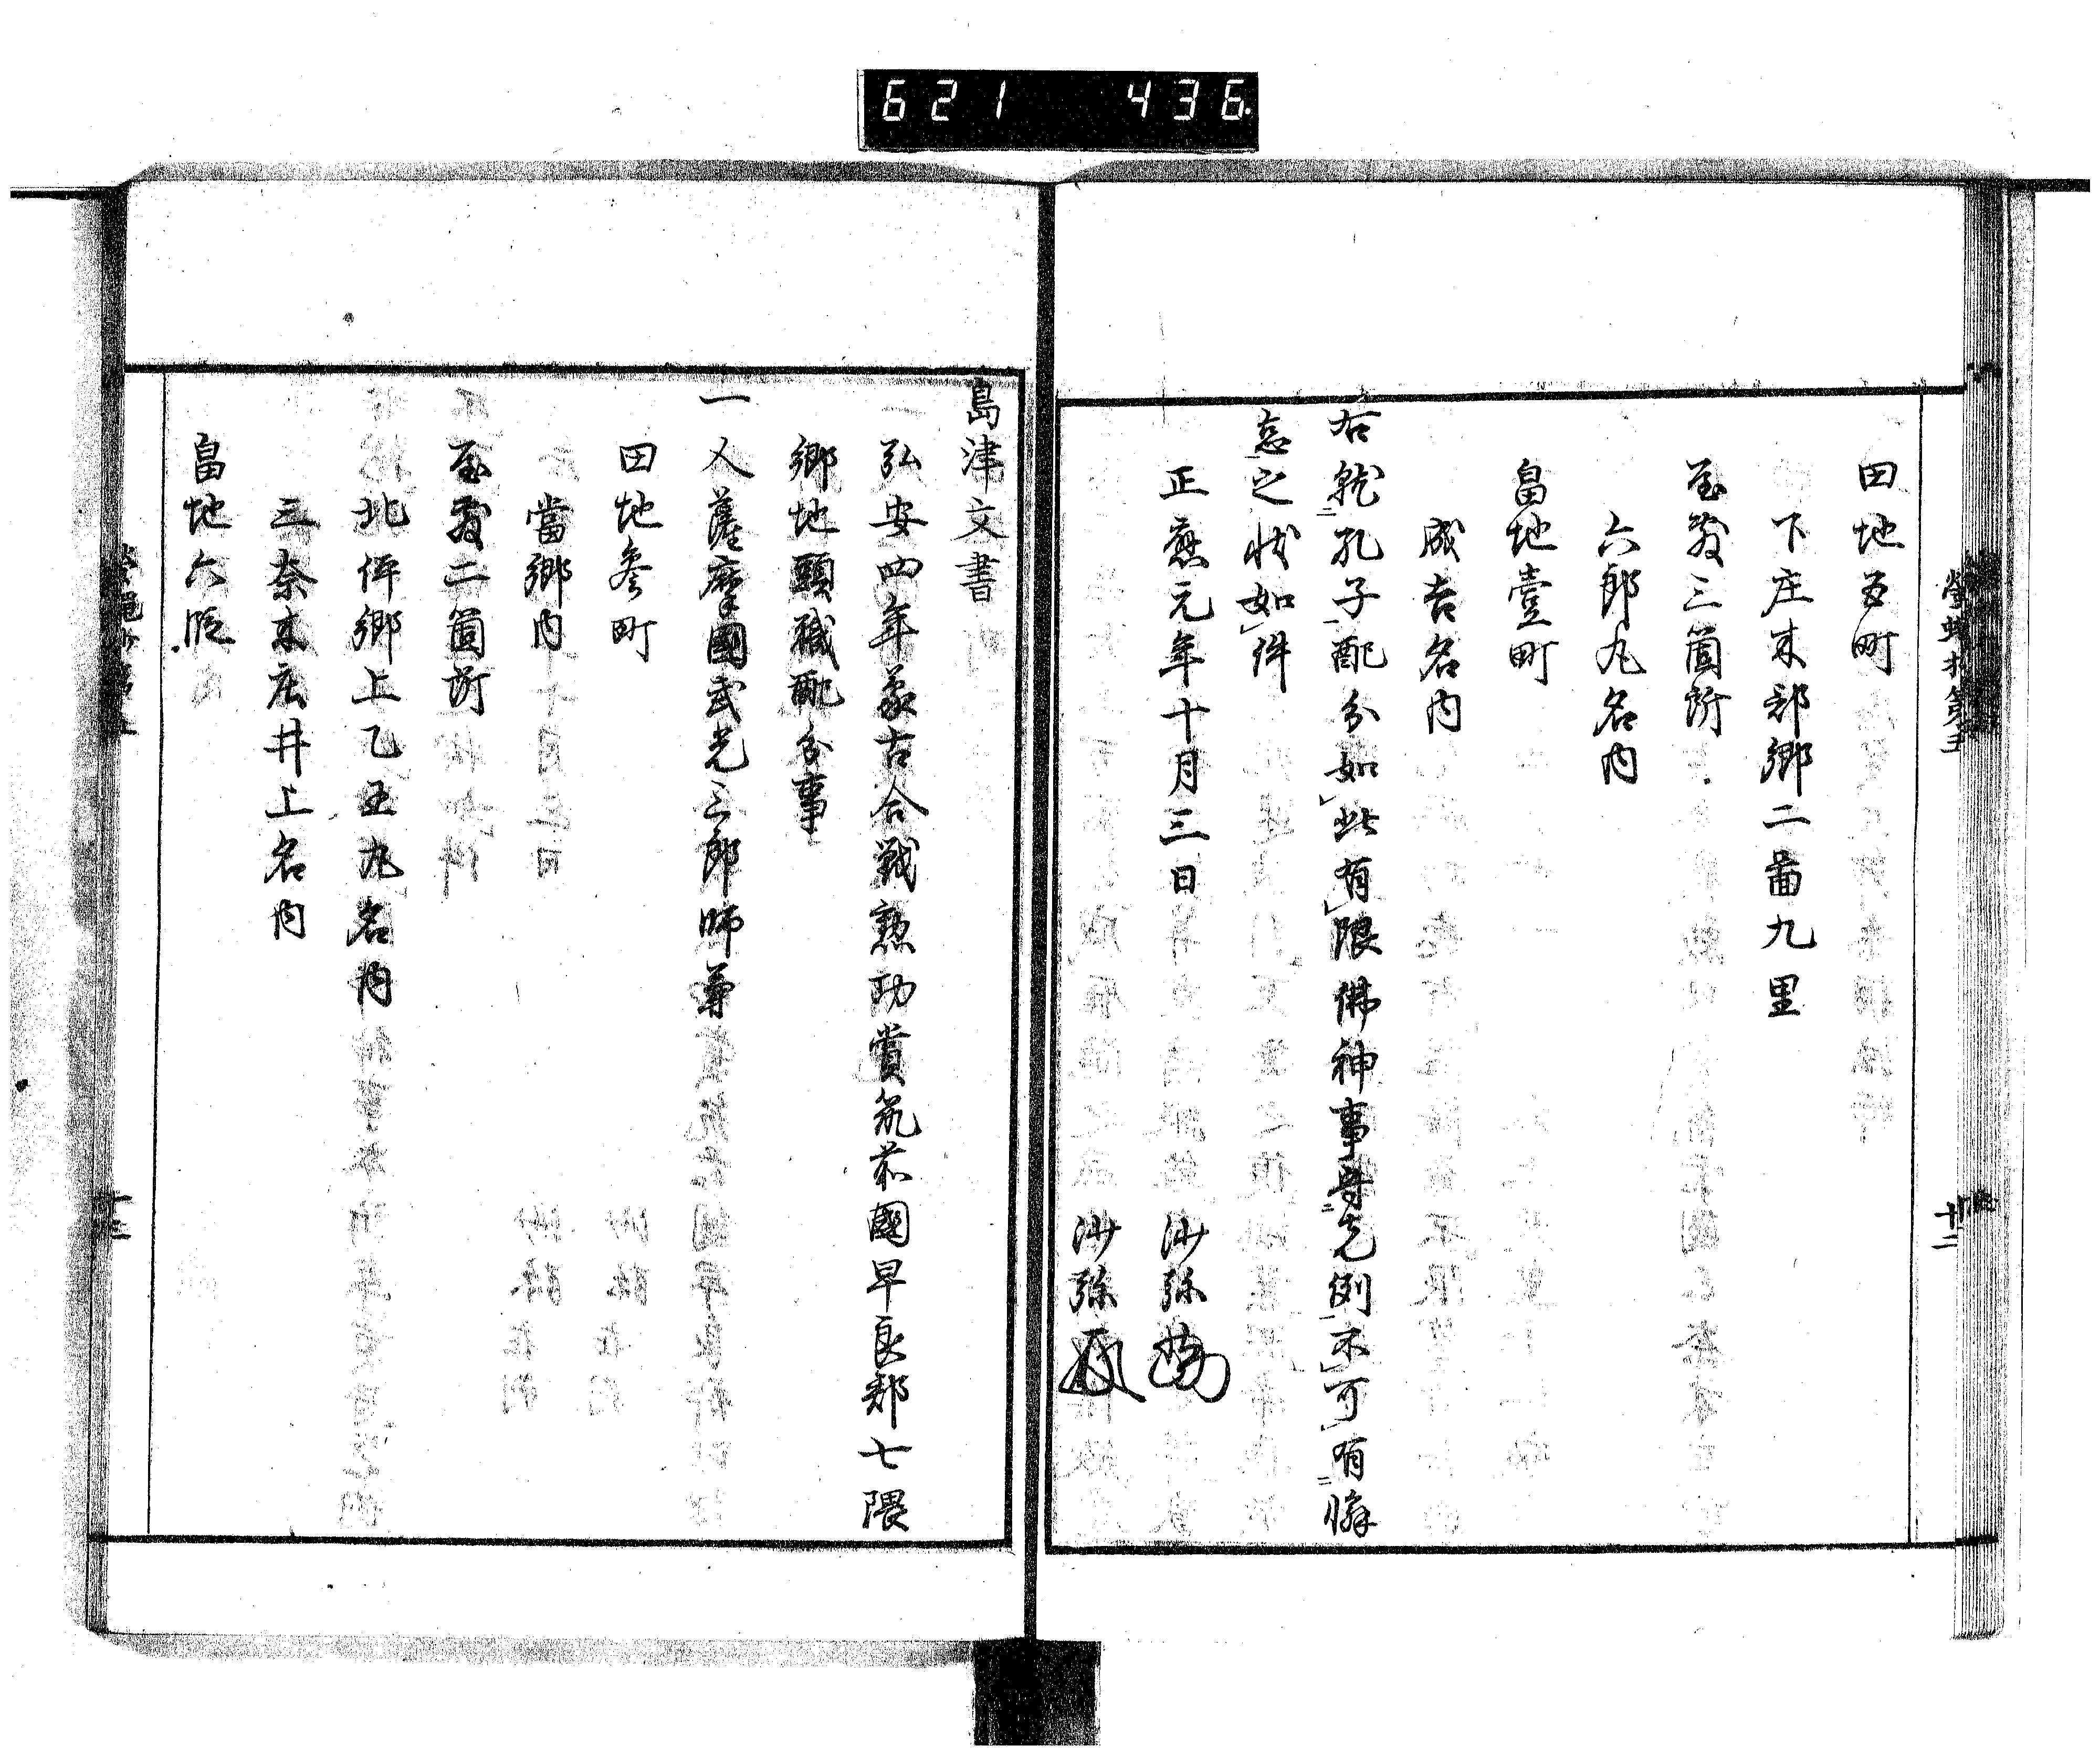 621 436
田地五町
下庄末郡郷二啚九里
屋敷三箇所
六郎丸名内
畠地壹町
成吉名内
右就孔子配分如此有限佛神事守先例不可有懈
怠之状如件
正應元年十月三日 沙弥
沙弥
十二
島津文書
弘安四年蒙古合戦勲功賞筑前國早良郡七隈
郷地頭職配分事
一人薩摩國武光三郎師兼
田地参町
當郷内
屋敷二箇所
北俣郷上乙王丸名内
三奈木庄井上名内
畠地六段
十三